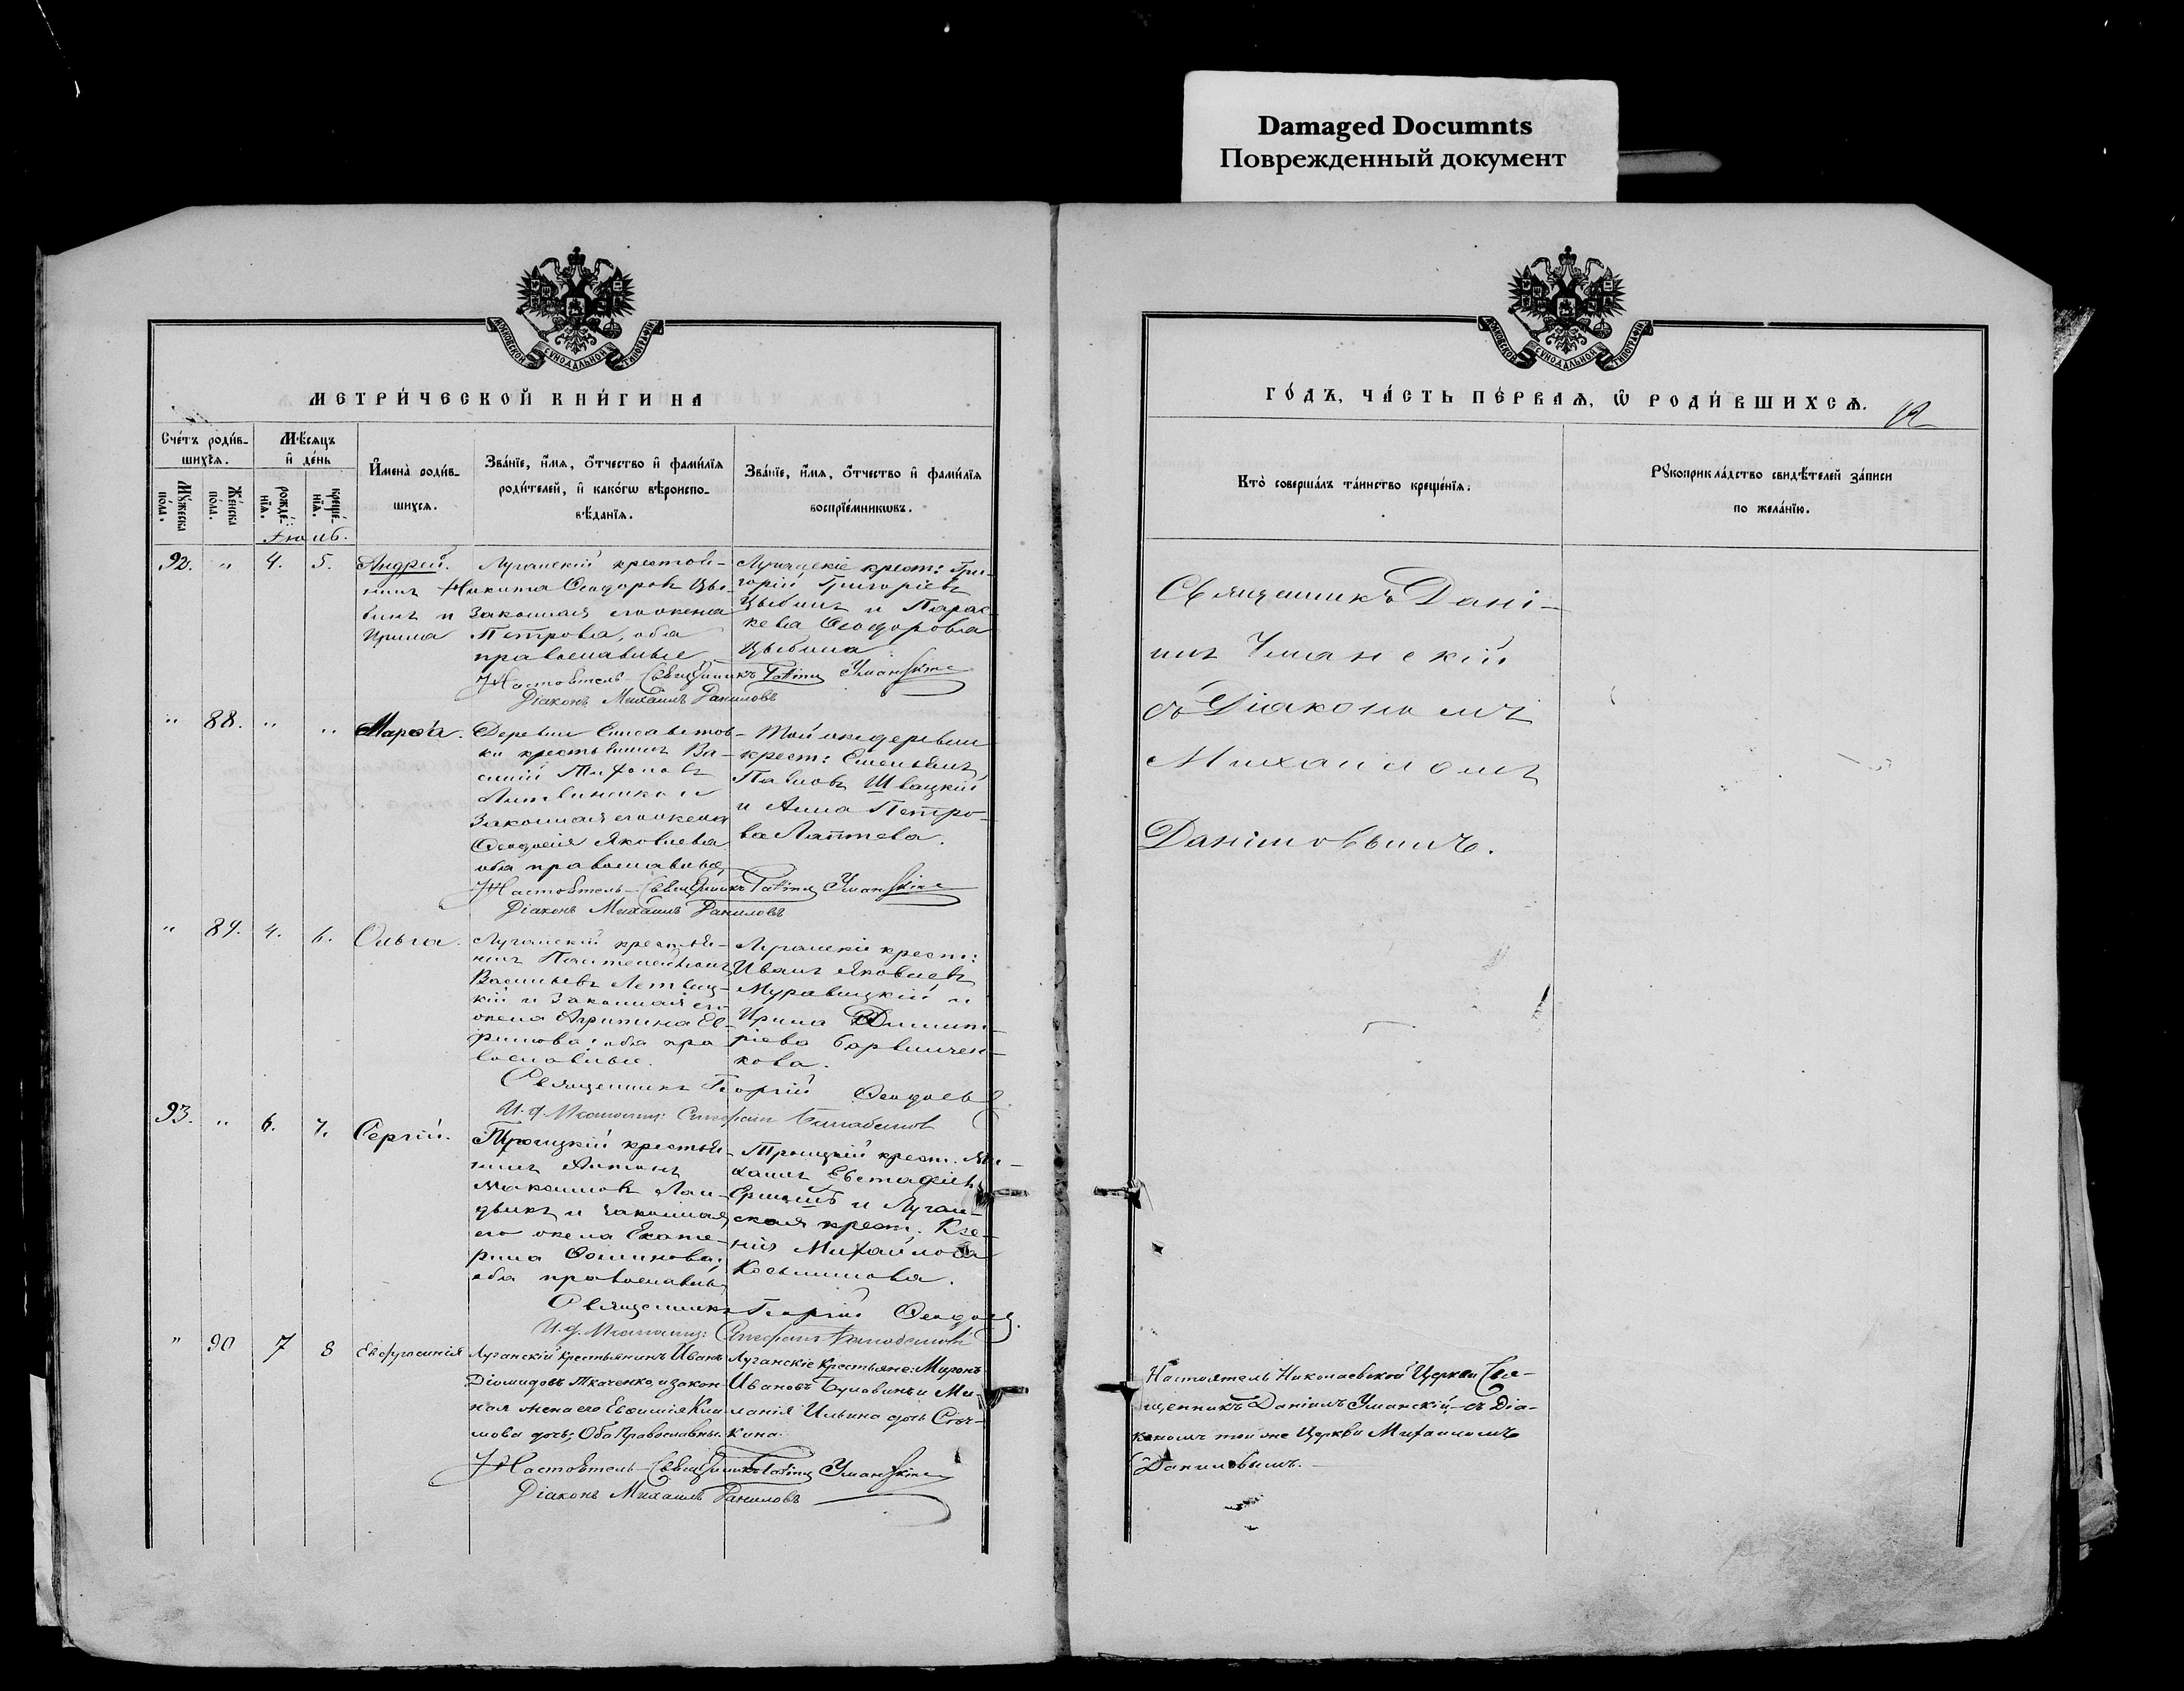 Damaged Documnts
Поврежденный документ
МОСКОВСКОЙ СУНОДАЛЬНОЙ ТИПОГРАФІИ
МЕТРИ́ЧЕСКОЙ КНИ́ГИ НА
Сче́тъ роди́в-
шихсѧ.
Мѣ́сяцъ
и҆ де́нь
Мꙋ́жеска по́ла.
Же́нска по́ла.
рожде́-нїѧ.
креще́-нїѧ.
И҆мена̀ роди́в-
шихсѧ.
Зва́нїе, и҆́мѧ, ѻ҆́тчество и҆ фами́лїѧ
роди́телей, и҆ како́гѡ вѣроиспо-
вѣ́данїѧ.
Зва́нїе, и҆́мѧ, ѻ҆́тчество и҆ фами́лїѧ
воспрїе́мникѡвъ.
Іюль.
92. " 4. 5. Андрей.
Луганскій крестья-
нинъ Никита Ѳеодоровъ Цы-
бинъ и законная его жена
Ирина Петрова, оба
православные
Луганскіе крест: Гри-
горій Григоріевъ
Цыбинъ и Парас-
кева Ѳеодорова
Цыбина
Настоятель Священникъ Даніилъ Уманскій
Діаконъ Михаилъ Даниловъ
" 88. " " Марѳа.
Деревни Елисаветов-
ки крестьянинъ Ва-
силій
Литвиненко и
законная его жена
Ѳеодосія Яковлева
оба православные
Той же деревни
крест: Емельянъ
Павловъ Швацкій
и Анна Петро-
ва Лаптева.
Настоятель Священникъ Даніилъ Уманскій
Діаконъ Михаилъ Даниловъ
" 89. 4. 6. Ольга.
Луганскій крестья-
нинъ Пантелеймонъ
Васильевъ
кій и законная его
жена
оба пра-
вославные.
Луганскіе крест:
Иванъ Яковлевъ
Муравицкій и
Ирина Димит-
ріева Барвинчен-
кова.
Священникъ Георгій Ѳеодосьев
И. д. Псаломщ: Стефанъ
93. " 6. 7. Сергій.
Троицкій крестья-
нинъ Антонъ
Максимовъ Лан-
дыкъ и законная
его жена Екате-
рина
оба православн.
Троицкій крест. Ми-
хаилъ Евстафіевъ
и Луган-
ская крест. Ксе-
нія Михайлова
Косьминова.
Священникъ Георгій Ѳеодос
И. д. Псаломщ: Стефанъ
" 90 7 8 Евфросинія
Луганскій Крестьянинъ Иванъ
Діомидовъ Ткаченко, и закон-
ная жена его Евѳимія Кли-
мова дочь; Оба Православны.
Луганскіе Крестьяне: Миронъ
Ивановъ Буловинъ и Ме-
ланія Ильина дочь
кина.
Настоятель Священникъ Даніилъ Уманскій
Діаконъ Михаилъ Даниловъ
МОСКОВСКОЙ СУНОДАЛЬНОЙ ТИПОГРАФІИ
ГО́ДЪ, ЧА́СТЬ ПЕ́РВАѦ, Ѽ РОДИ́ВШИХСѦ.
Кто̀ соверша́лъ та́инство креще́нїѧ.
Рꙋкоприкла́дство свидѣ́телей за́писи
по жела́нїю.
Священникъ Дані-
илъ Уманскій
съ Діакономъ
Михаиломъ
Даниловымъ.
Настоятель Николаевской Церкви Свя-
щенникъ Даніилъ Уманскій, съ Діа-
кономъ той же Церкви Михаиломъ
Даниловымъ.